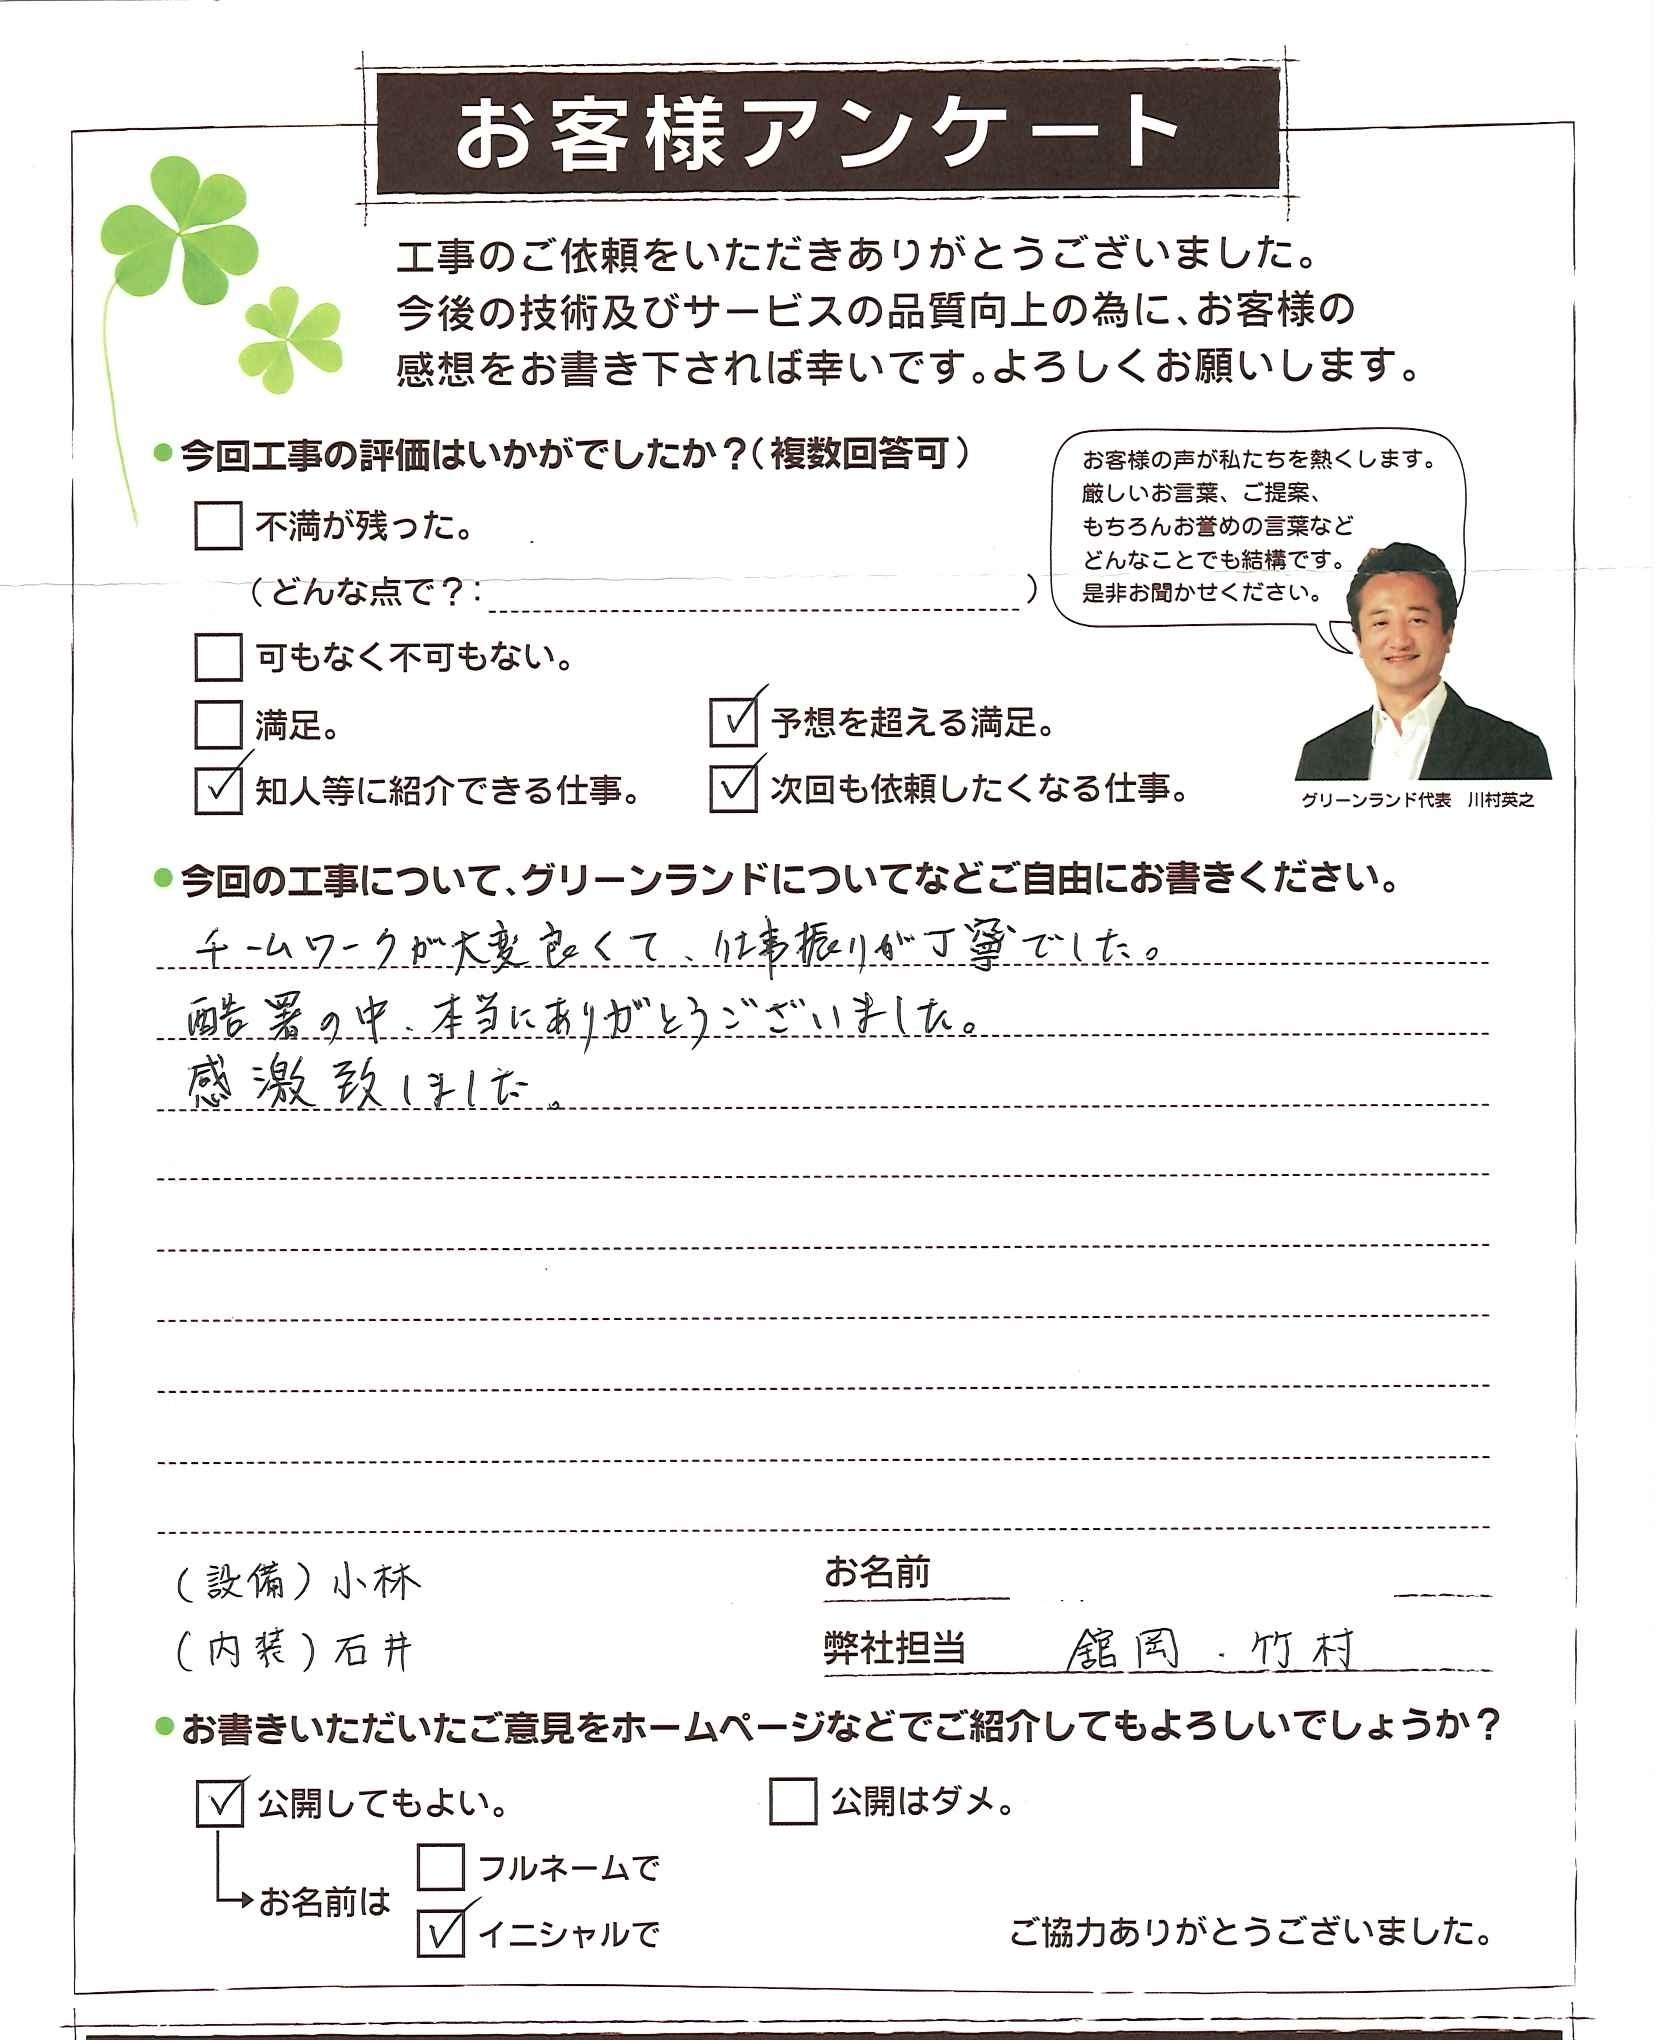 お客様アンケート
工事のご依頼をいただきありがとうございました。
今後の技術及びサービスの品質向上の為に、お客様の
感想をお書き下されば幸いです。よろしくお願いします。
今回工事の評価はいかがでしたか？（複数回答可）
お客様の声が私たちを熱くします。
厳しいお言葉、ご提案、
もちろんお誉めの言葉など
どんなことでも結構です。
是非お聞かせください。
不満が残った。
（どんな点で？：　）
可もなく不可もない。
満足。
予想を超える満足。
知人等に紹介できる仕事。
次回も依頼したくなる仕事。
グリーンランド代表　川村英之
今回の工事について、グリーンランドについてなどご自由にお書きください。
チームワークが大変良くて、仕事振りが丁寧でした。
酷署の中、本当にありがとうございました。
感激致しました。
（設備）小林
お名前
（内装）石井
弊社担当　舘岡．竹村
お書きいただいたご意見をホームページなどでご紹介してもよろしいでしょうか？
公開してもよい。
公開はダメ。
フルネームで
お名前は
イニシャルで
ご協力ありがとうございました。